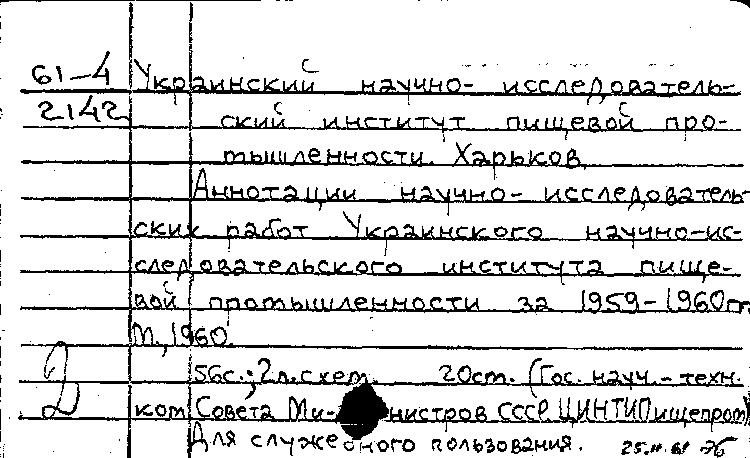 61-4 Украинский научно-исследователь-
2142 ский институт пищевой про-
мышленности. Харьков.
Аннотации научно-исследователь-
ских работ Украинского научно-ис-
следовательского института пище-
вой промышленности за 1959-1960гг
М., 1960.
56с.; 2л.схем. 20см. (Гос. науч.-техн.
ком Совета Ми-нистров СССР. ЦИНТИПищепром)
Для служебного пользования.